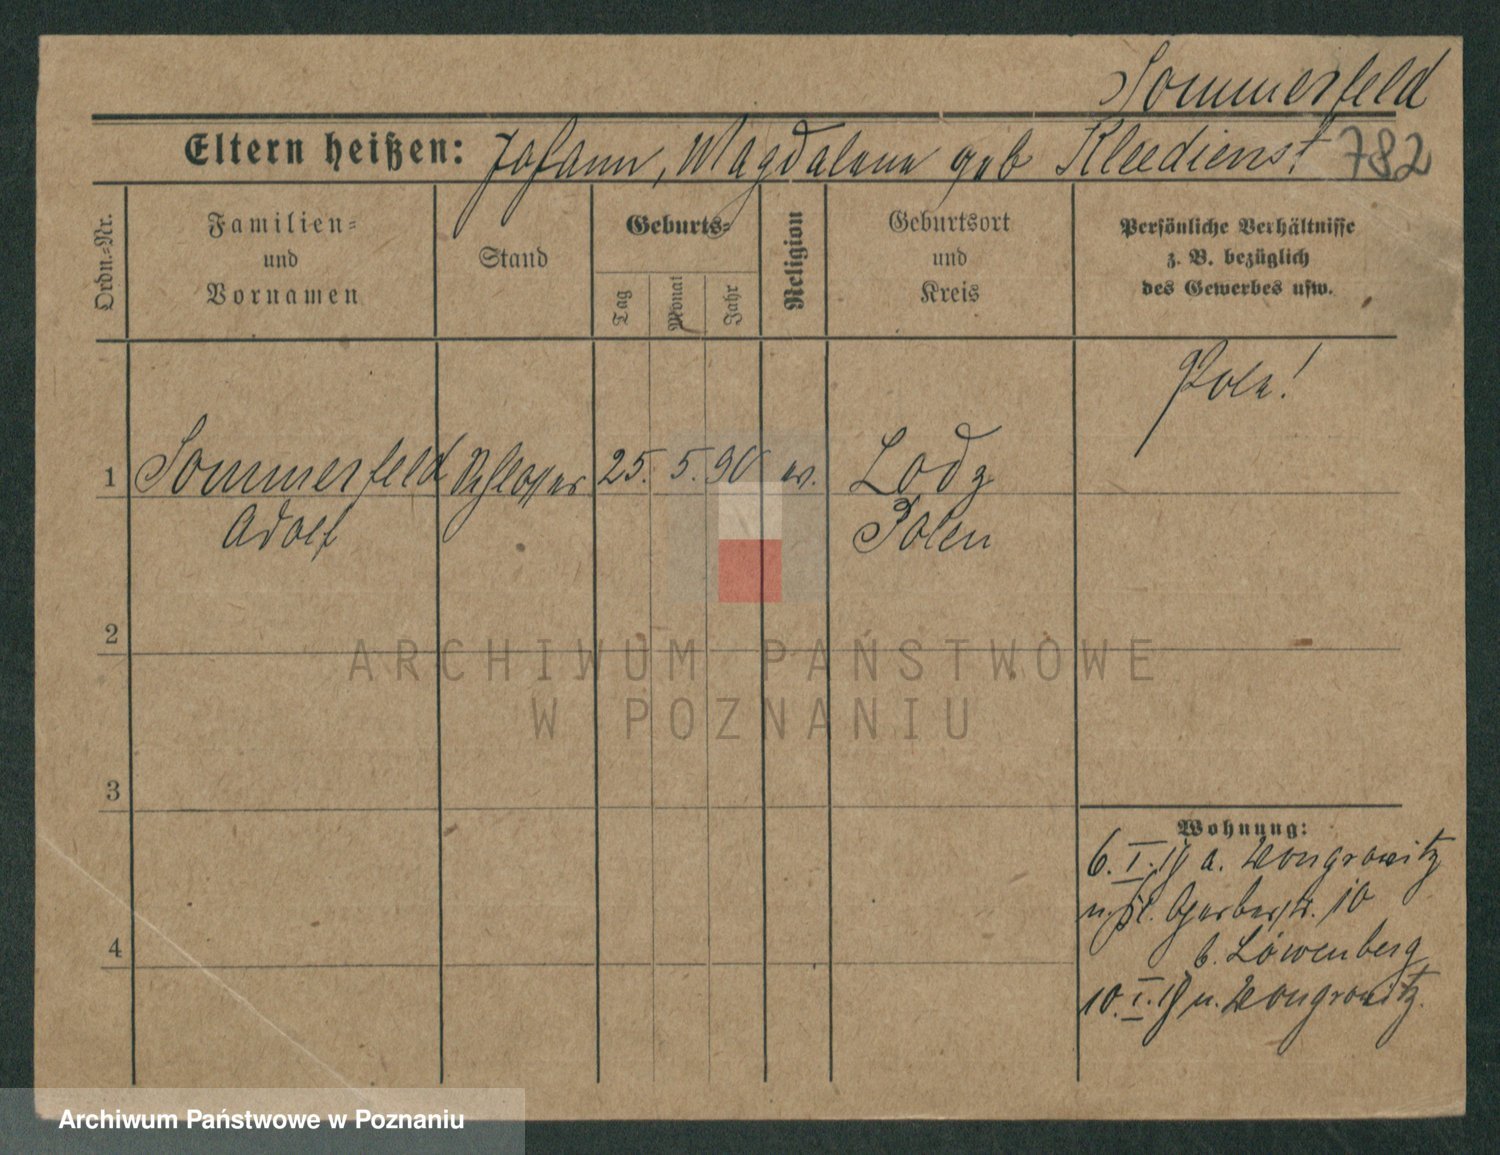 Sommerfeld
Eltern heißen: Johann, Magdalena geb Kleedienst 782
Ordn.-Nr.
Familien-
und
Vornamen
Stand
Geburts-
Tag
Monat
Jahr
Religion
Geburtsort
und
Kreis
Persönliche Verhältnisse
z. B. bezüglich
des Gewerbes usw.
Pole!
1 Sommerfeld Schlosser 25. 5. 90 ev. Lodz
Adolf Polen
2
ARCHIWUM PAŃSTWOWE
W POZNANIU
3
Wohnung:
6. I. 19 a. Wongrowitz
n. Gerberstr. 10
b. Löwenberg
4
10. I. 19 n. Wongrowitz.
Archiwum Państwowe w Poznaniu